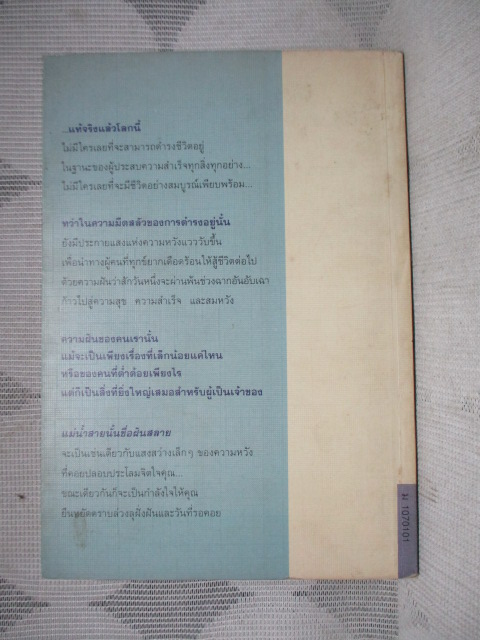 ...แท้จริงแล้วโลกนี้
ไม่มีใครเลยที่จะสามารถดำรงชีวิตอยู่
ในฐานะของผู้ประสบความสำเร็จทุกสิ่งทุกอย่าง...
ไม่มีใครเลยที่จะมีชีวิตอย่างสมบูรณ์เพียบพร้อม...
ทว่าในความมืดสลัวของการดำรงอยู่นั้น
ยังมีประกายแสงแห่งความหวังแวววับขึ้น
เพื่อนำทางผู้คนที่ทุกข์ยากเดือดร้อนให้สู้ชีวิตต่อไป
ด้วยความฝันว่าสักวันหนึ่งจะผ่านพ้นช่วงฉากอันอับเฉา
ก้าวไปสู่ความสุข ความสำเร็จ และสมหวัง
ความฝันของคนเรานั้น
แม้จะเป็นเพียงเรื่องที่เล็กน้อยแค่ไหน
หรือของคนที่ต่ำต้อยเพียงไร
แต่ก็เป็นสิ่งที่ยิ่งใหญ่เสมอสำหรับผู้เป็นเจ้าของ
แม่น้ำสายนั้นชื่อฝันสลาย
จะเป็นเช่นเดียวกับแสงสว่างเล็กๆ ของความหวัง
ที่คอยปลอบประโลมจิตใจคุณ...
ขณะเดียวกันก็จะเป็นกำลังใจให้คุณ
ยืนหยัดตราบล่วงลุฝั่งฝันและวันที่รอคอย
1070101